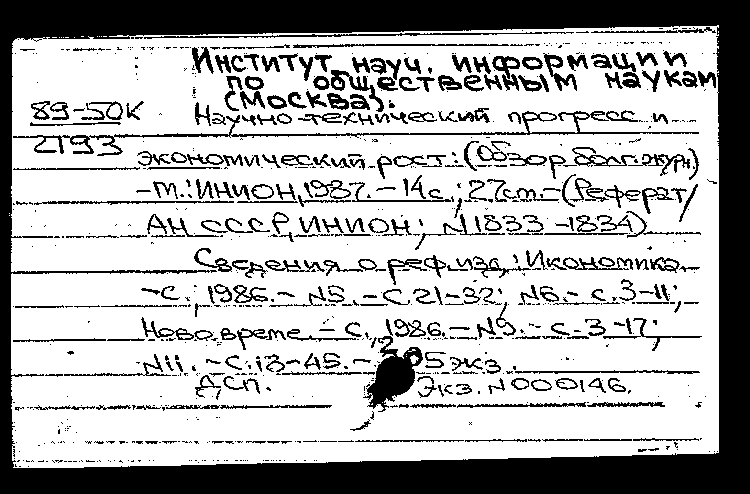 Институт науч. информации
по общественным наукам
(Москва).
89-50К
2193
Научно-технический прогресс и
экономический рост: (Обзор болг. журн)
-М.: ИНИОН, 1987. - 14 с.; 27 cm. - (Реферат/
АН СССР, ИНИОН; N 1833-1834)
Сведения о реф. изд.: Икономика.
- С., 1986. - N5. - С. 21-32; N6. - С. 3-11;
Ново време - С., 1986. - N9. - С. 3-17;
N11. - С. 13-45. - 205 экз.
ДСП. Экз. N 000146.